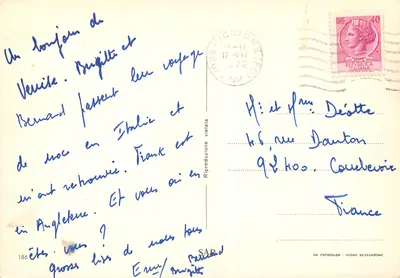 Un bonjour de
Venise. Brigitte et
Bernard passent leur voyage
de noce en Italie et
m'ont retrouvée. Frank est
en Angleterre. Et vous où en
êtes vous ?
Grosses bises de nous tous
Bernard
Brigitte
186
SAR
Riproduzione vietata
1972
60
Mr et Mme Déotte
46, rue Danton
92400. Courbevoie
France